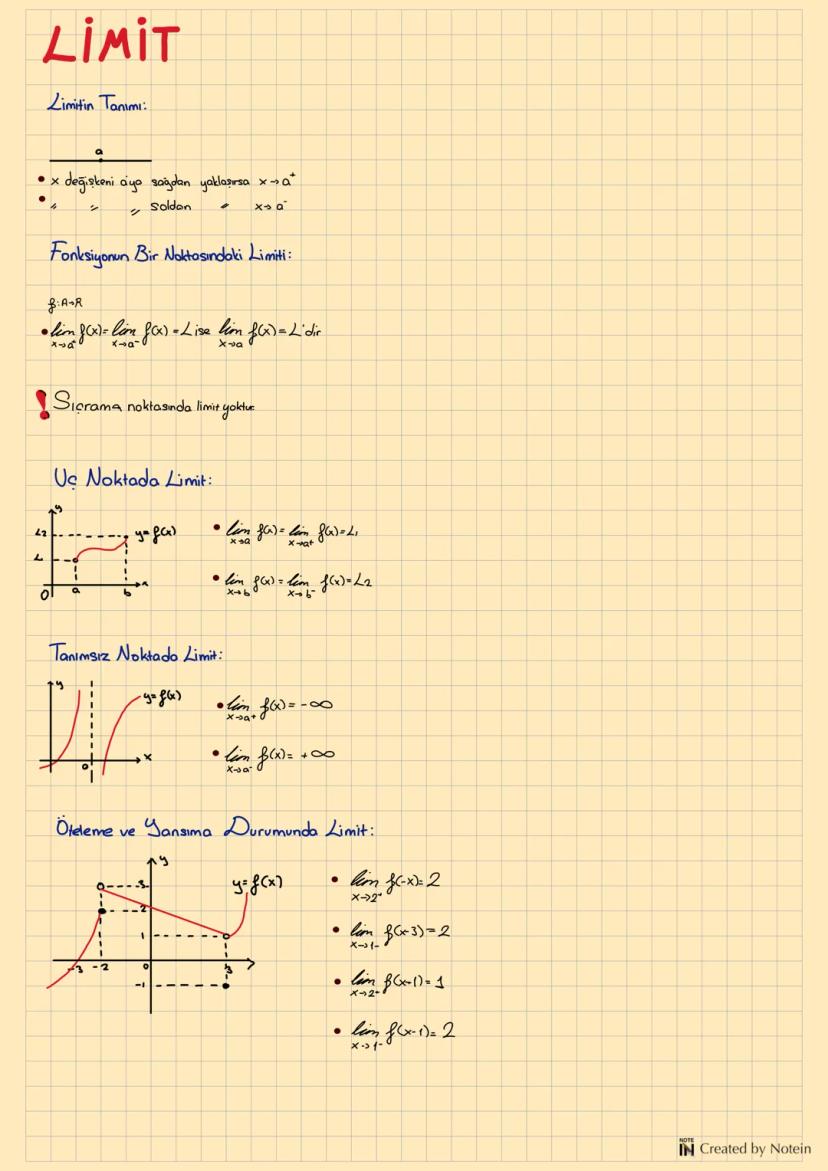 LİMİT
Limitin Tanımı:
a
• x değişkeni a'ya sağdan yaklaşırsa x→a⁺
• " " " soldan " x→a⁻
Fonksiyonun Bir Noktasındaki Limiti:
f:A→R
• lim x→a⁺ f(x) = lim x→a⁻ f(x) = L ise lim x→a f(x) = L'dir
! Sıçrama noktasında limit yoktur
Uç Noktada Limit:
y
L2
y=f(x)
L
O a b x
• lim x→a f(x) = lim x→a+ f(x) = L₁
• lim x→b f(x) = lim x→b⁻ f(x) = L2
Tanımsız Noktada Limit:
y
y=f(x)
x
a
• lim x→a+ f(x) = -∞
• lim x→a⁻ f(x) = +∞
Öteleme ve Yansıma Durumunda Limit:
y
3
y=f(x)
2
1
-3 -2 0 3
-1
• lim x→2⁺ f(-x) = 2
• lim x→1- f(x-3) = 2
• lim x→2⁺ f(x-1) = 1
• lim x→1- f(x-1) = 2
NOTE IN Created by Notein